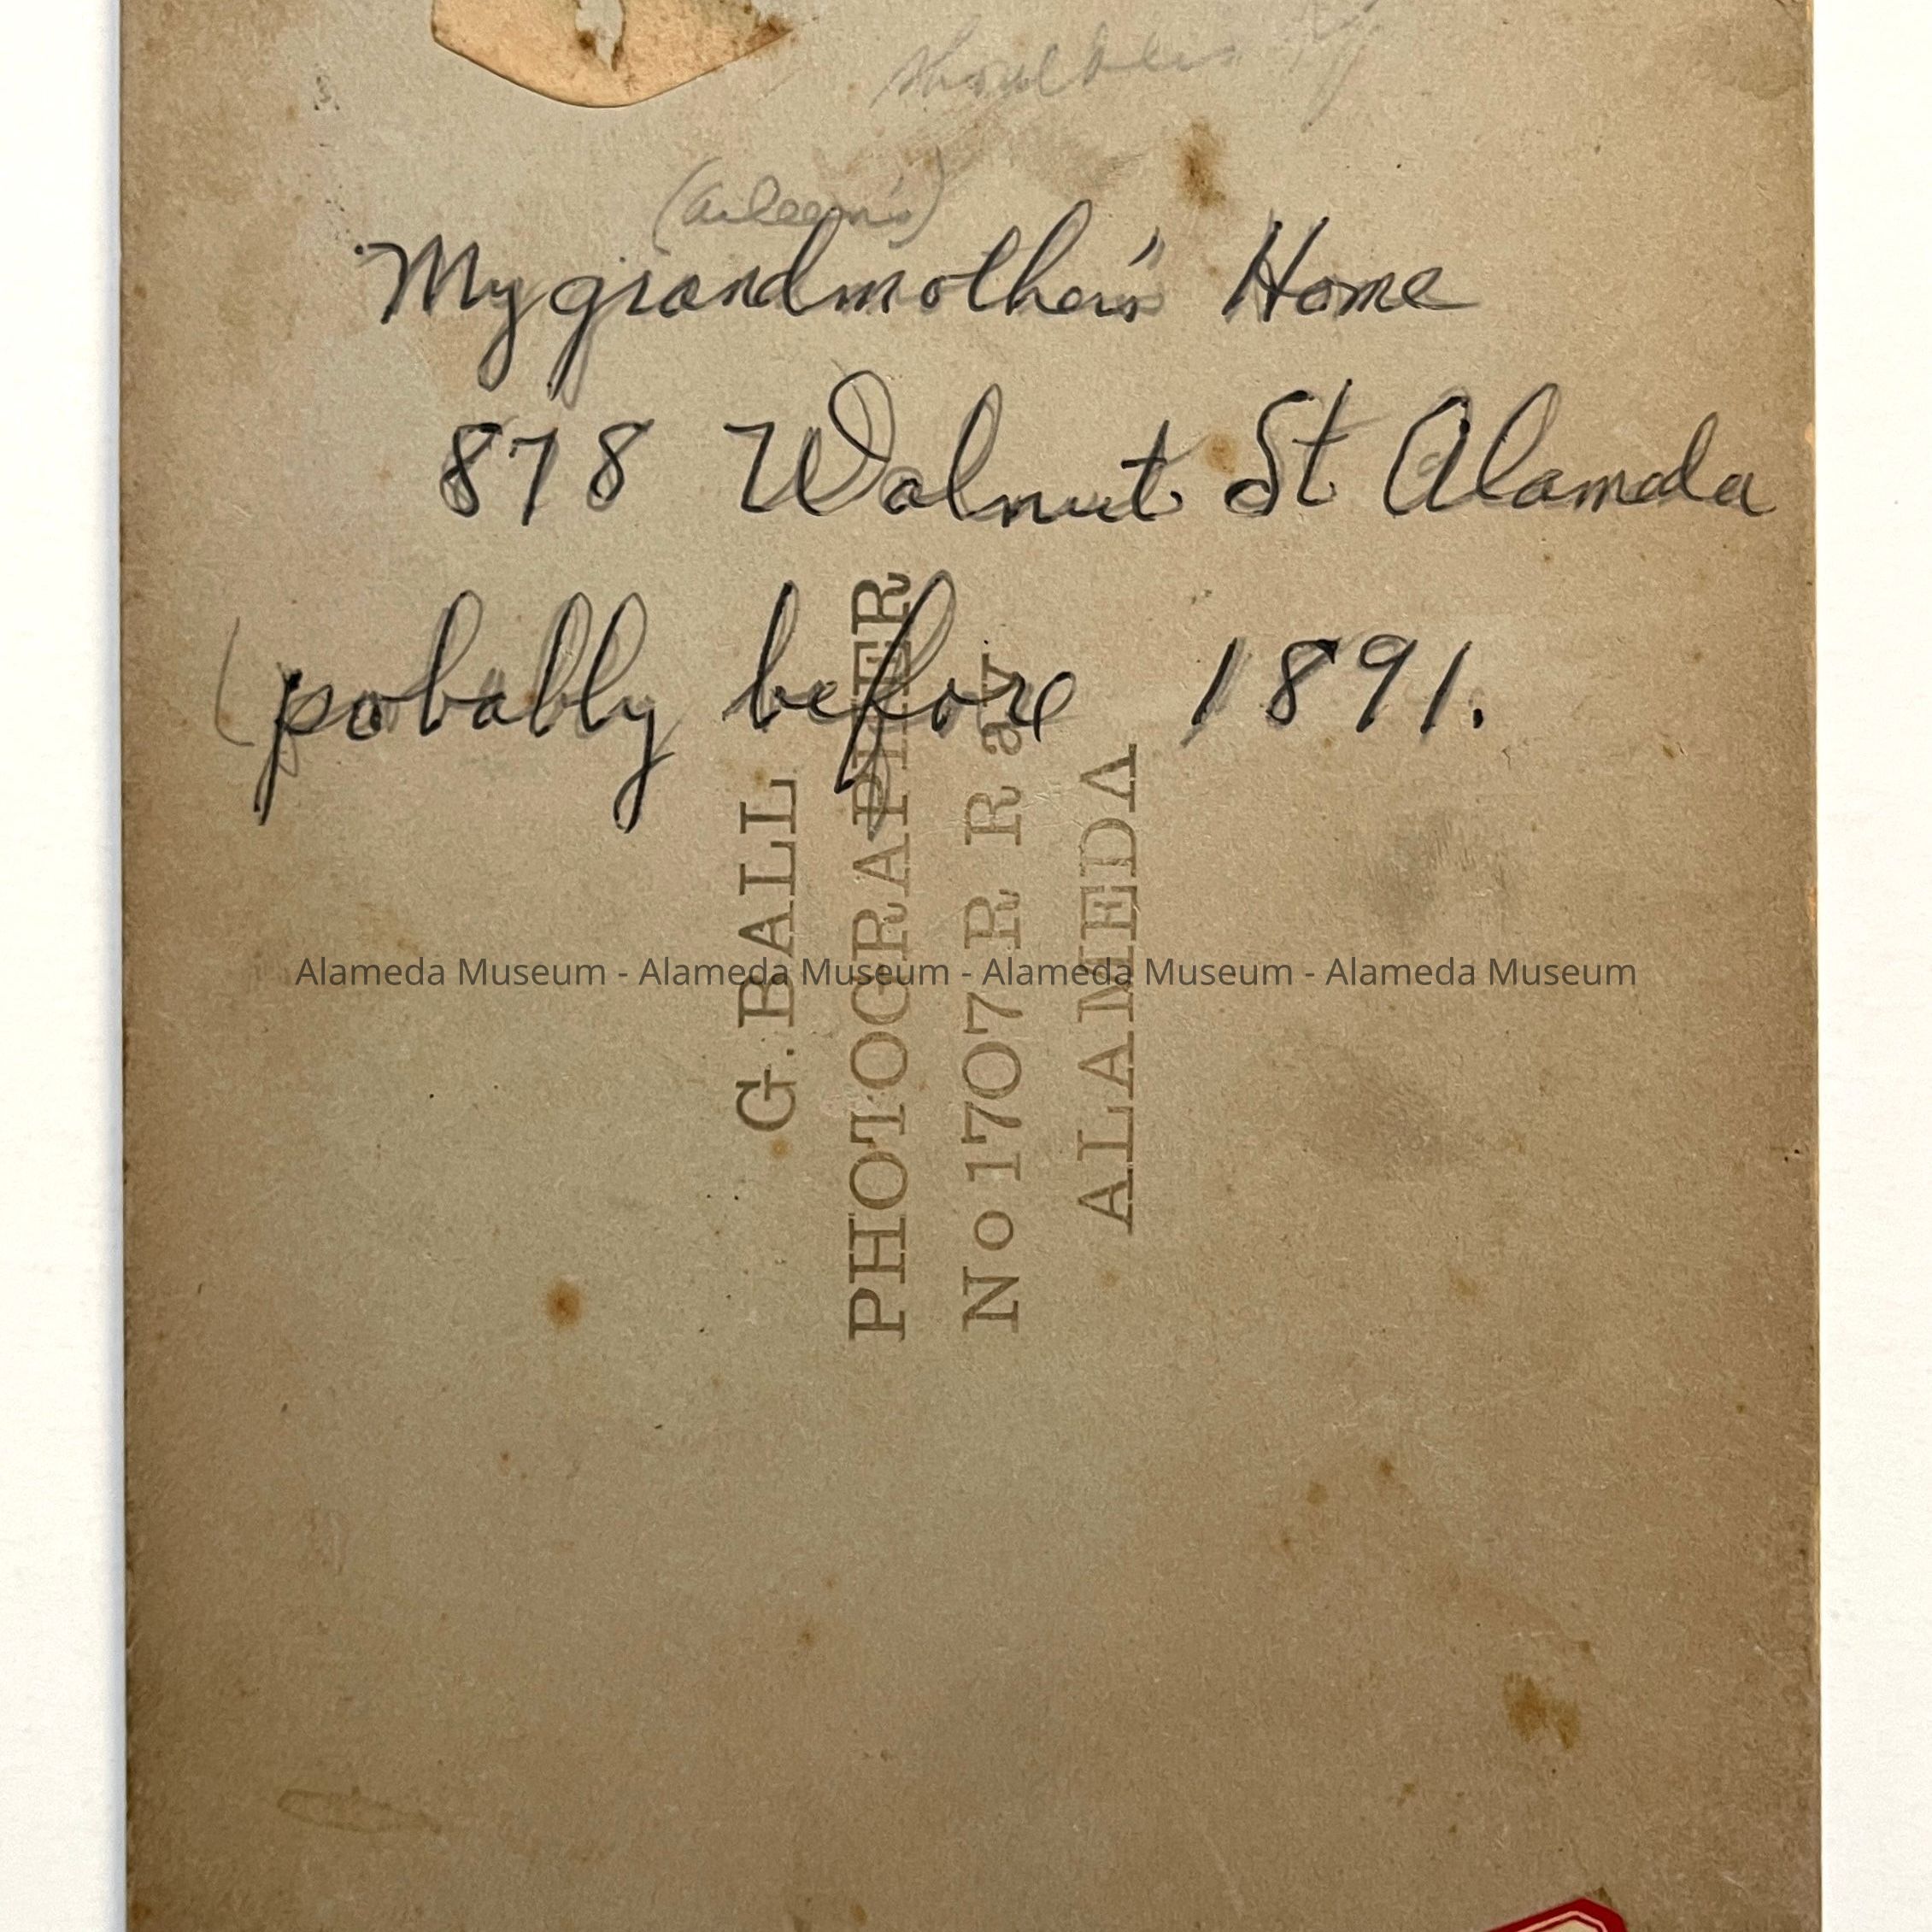 (Aileen's)
My grandmother's Home
878 Walnut St Alameda
pobably before 1891.
G. BALL
PHOTOGRAPHER
No 1707 R R av
ALAMEDA
Alameda Museum - Alameda Museum - Alameda Museum - Alameda Museum